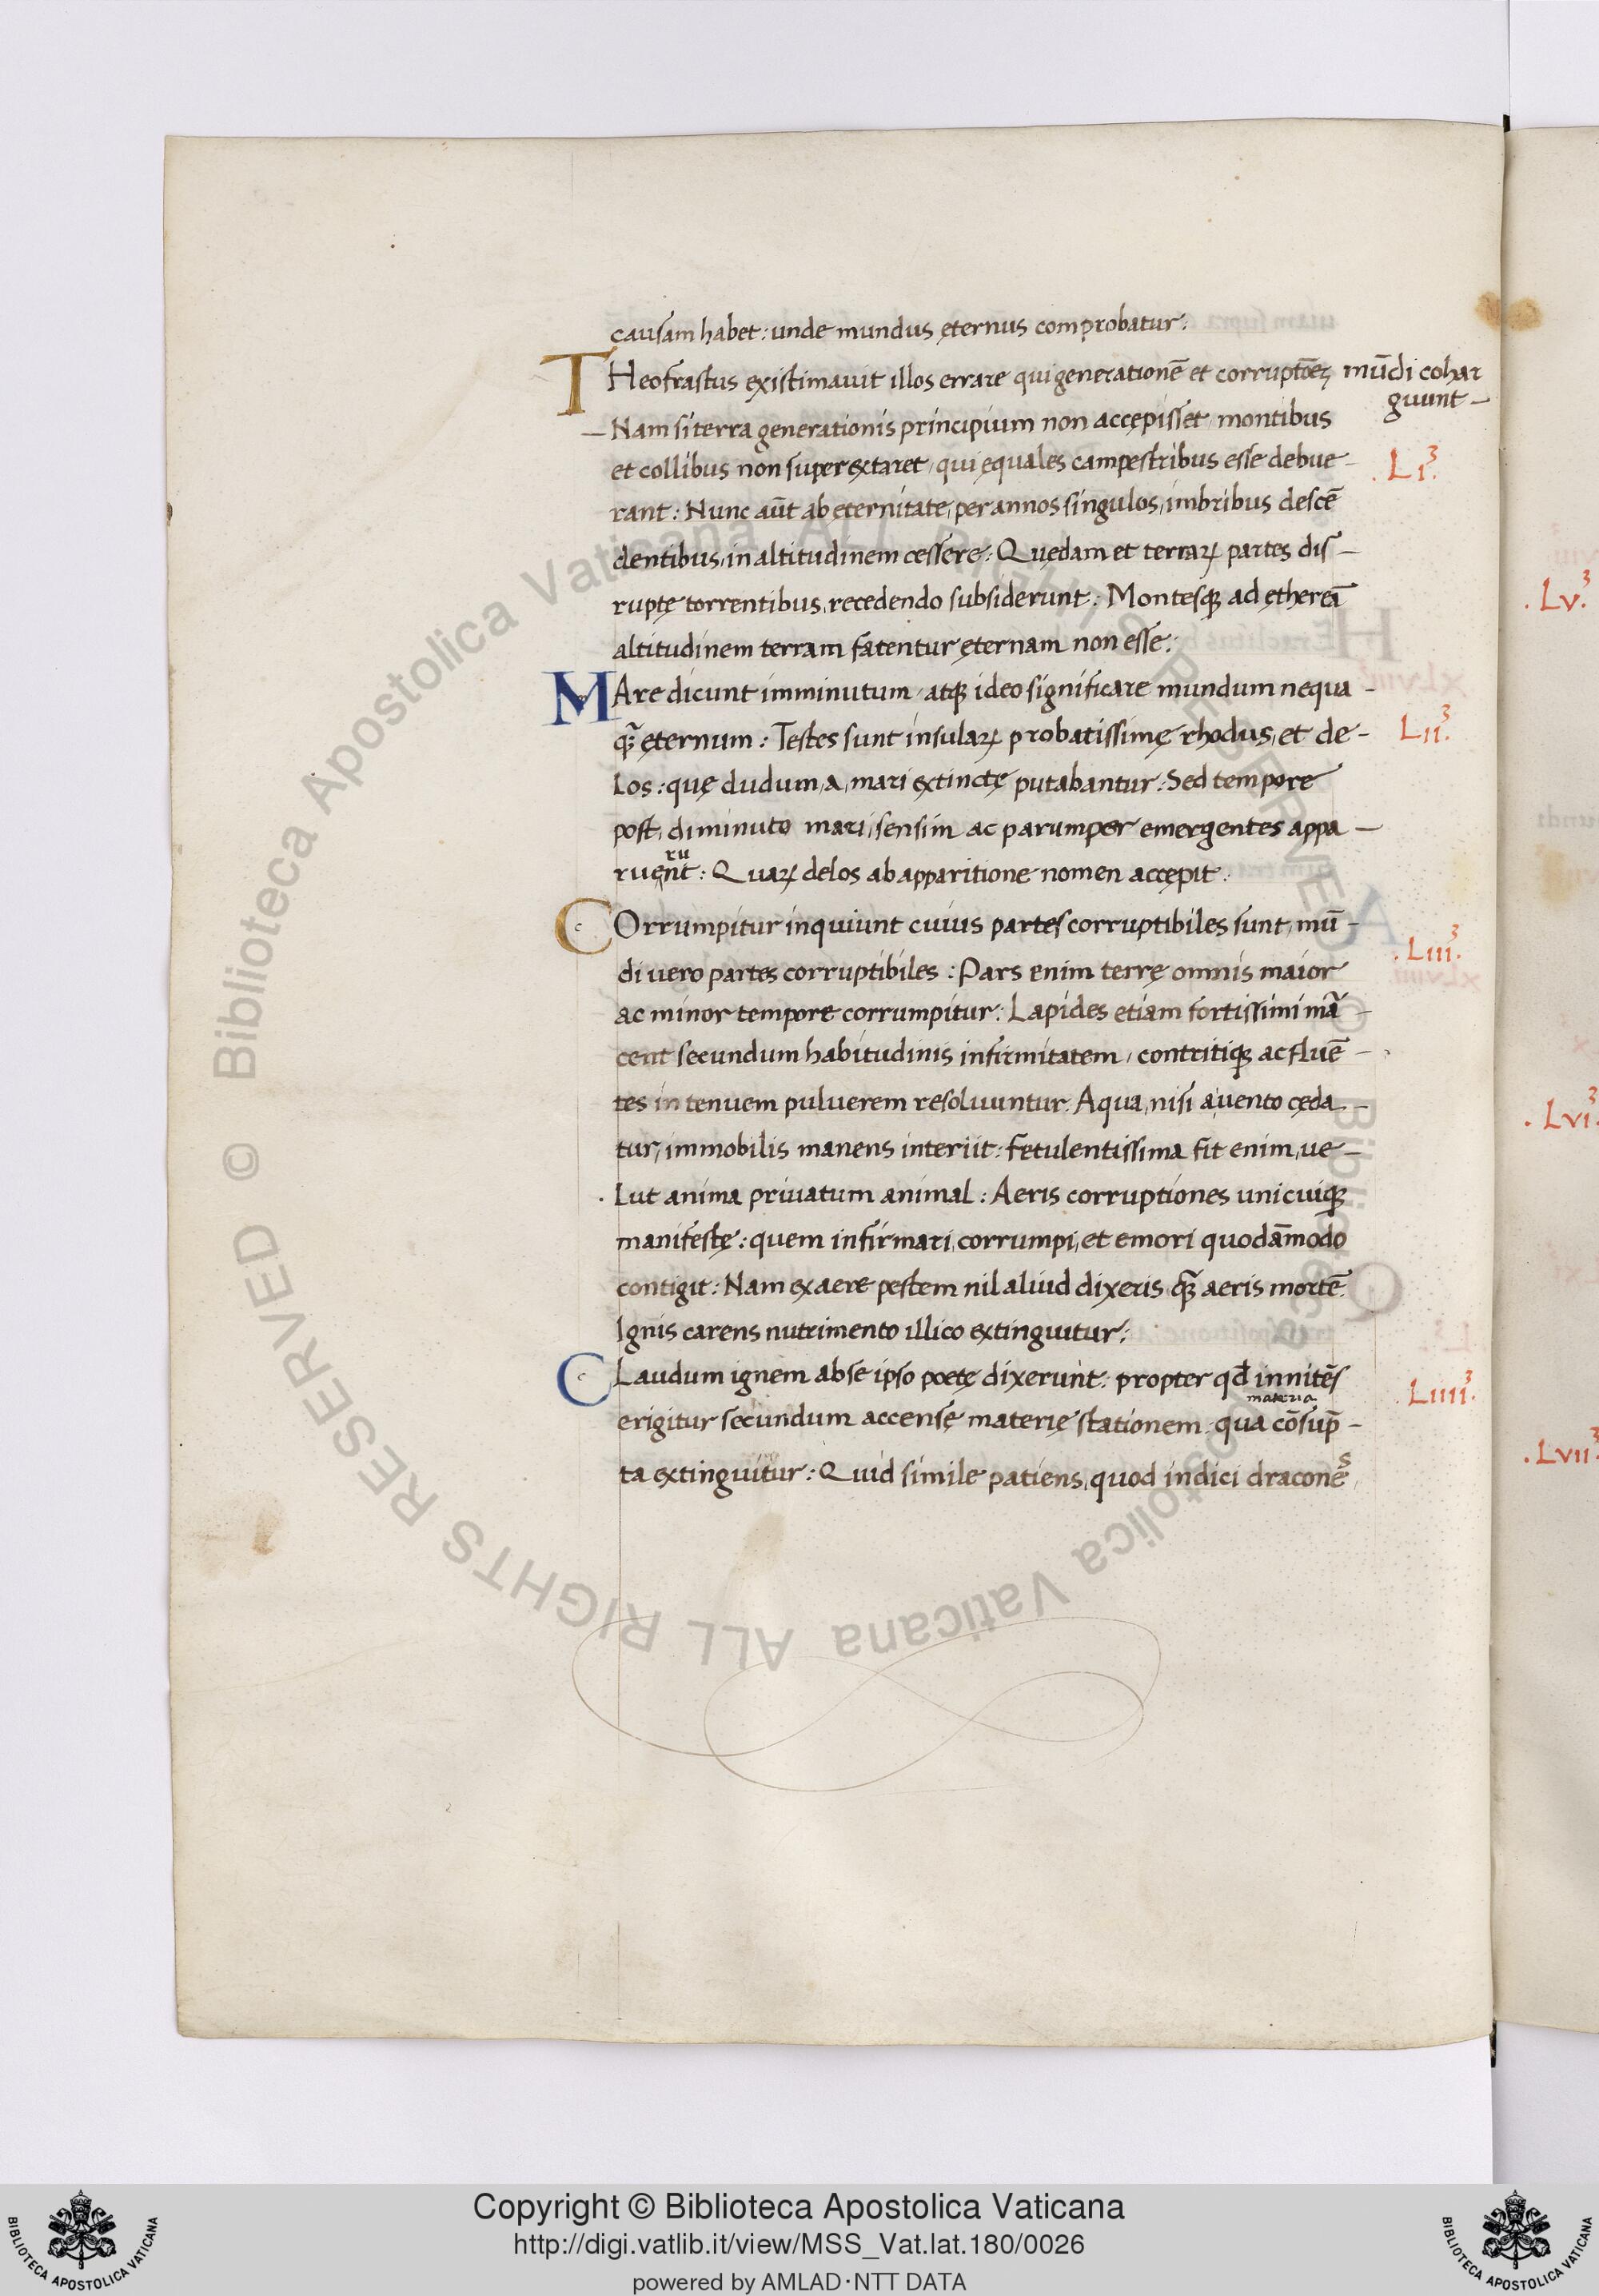 causam habet: unde mundus ęternus comprobatur:
THeofrastus existimauit illos errare qui generationē et corruptōeꝫ mūdi cohar
guunt –
– Nam si terra generationis principium non accępisset, montibus
et collibus non superextaret, qui ęquales campestribus esse debue –
.LI.³
rant: Nunc aūt ab ęternitate, per annos singulos, imbribus descē
dentibus, in altitudinem cessere: Quędam et terraꝝ partes dis –
ruptę torrentibus, recedendo subsiderunt: Montesqꝫ ad ętherēā
altitudinem terram fatentur ęternam non esse:
MAre dicunt imminutum, atqꝫ ideo significare mundum nequa –
qꝫ̄ ęternum: Testes sunt insulaꝝ probatissimę rhodus, et de –
LII.³
los: quę dudum, a, mari extinctę putabantur: Sed tempore
post, diminuto mari, sensim ac parumper emergentes appa –
ruerūnt: Quaꝝ delos ab apparitione nomen accępit.
COrrumpitur inquiunt cuius partes corruptibiles sunt, mū –
.LIII.³
di uero partes corruptibiles: Pars enim terrę omnis maior
ac minor tempore corrumpitur: Lapides etiam fortissimi mā –
cent secundum habitudinis infirmitatem, contritiqꝫ ac fluē –
tes in tenuem puluerem resoluuntur. Aqua, nisi a, uento cęda –
tur, immobilis manens interiit: fetulentissima fit enim, ue –
lut anima priuatum animal: Aeris corruptiones unicuiqꝫ
manifestę: quem infirmari, corrumpi, et emori quodāmodo
contigit: Nam ex aere pestem nil aliud dixeris qꝫ̄ aeris mortē.
Ignis carens nutrimento illico extinguitur:
CLaudum ignem ab se ipso poetę dixerunt: propter qđ innitēs
.LIIII.³
materia
erigitur secundum accensę materię stationem. qua cōsup̄ –
ta extinguitur: Quid simile patiens, quod indici draconēs
.LV.³
.LVI.³
.LVII.³
© Biblioteca Apostolica Vaticana ALL RIGHTS RESERVED
© Biblioteca Apostolica Vaticana ALL RIGHTS RESERVED
Copyright © Biblioteca Apostolica Vaticana
http://digi.vatlib.it/view/MSS_Vat.lat.180/0026
powered by AMLAD·NTT DATA
BIBLIOTECA APOSTOLICA VATICANA
BIBLIOTECA APOSTOLICA VATICANA